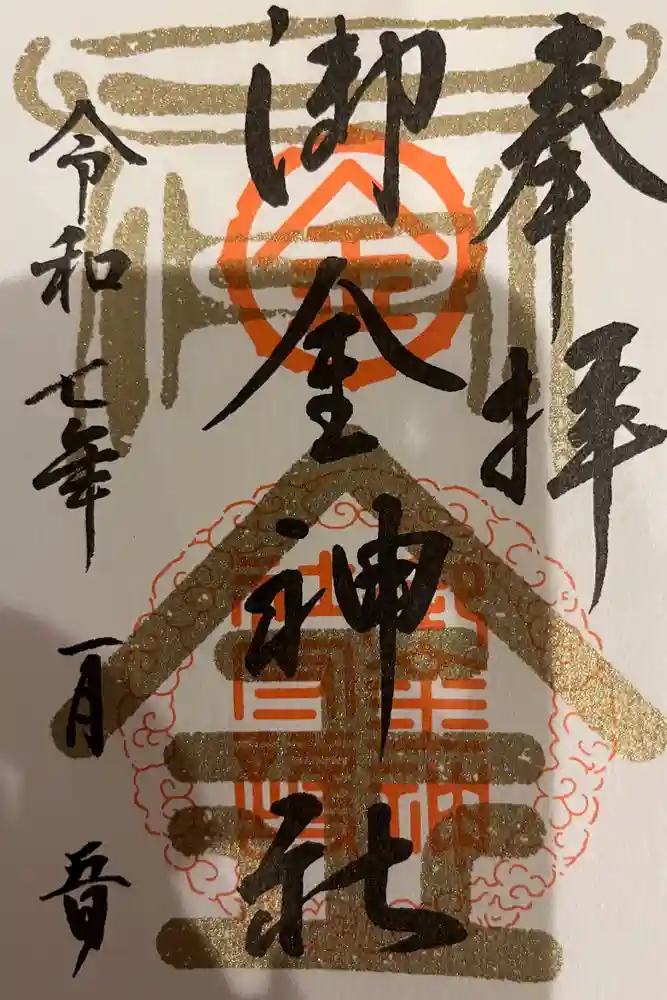 奉拝
御金神社
令和七年一月五日
金
金